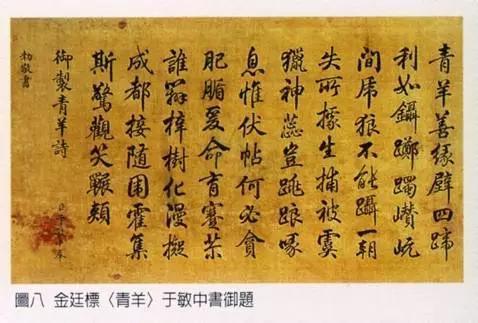 青羊善緣壁四蹄
利如鑷躑躅岏
間虎狼不能躡一朝
失所據生捕被虞
獵神蕊豈跳踉啄
息惟伏帖何必貪
肥腯爰命育
誰梓樹化漫擬
成都接隨圍霍集
斯驚觀笑囅頰
御製青羊詩
臣于敏中奉
勅敬書
圖八 金廷標〈青羊〉于敏中書御題